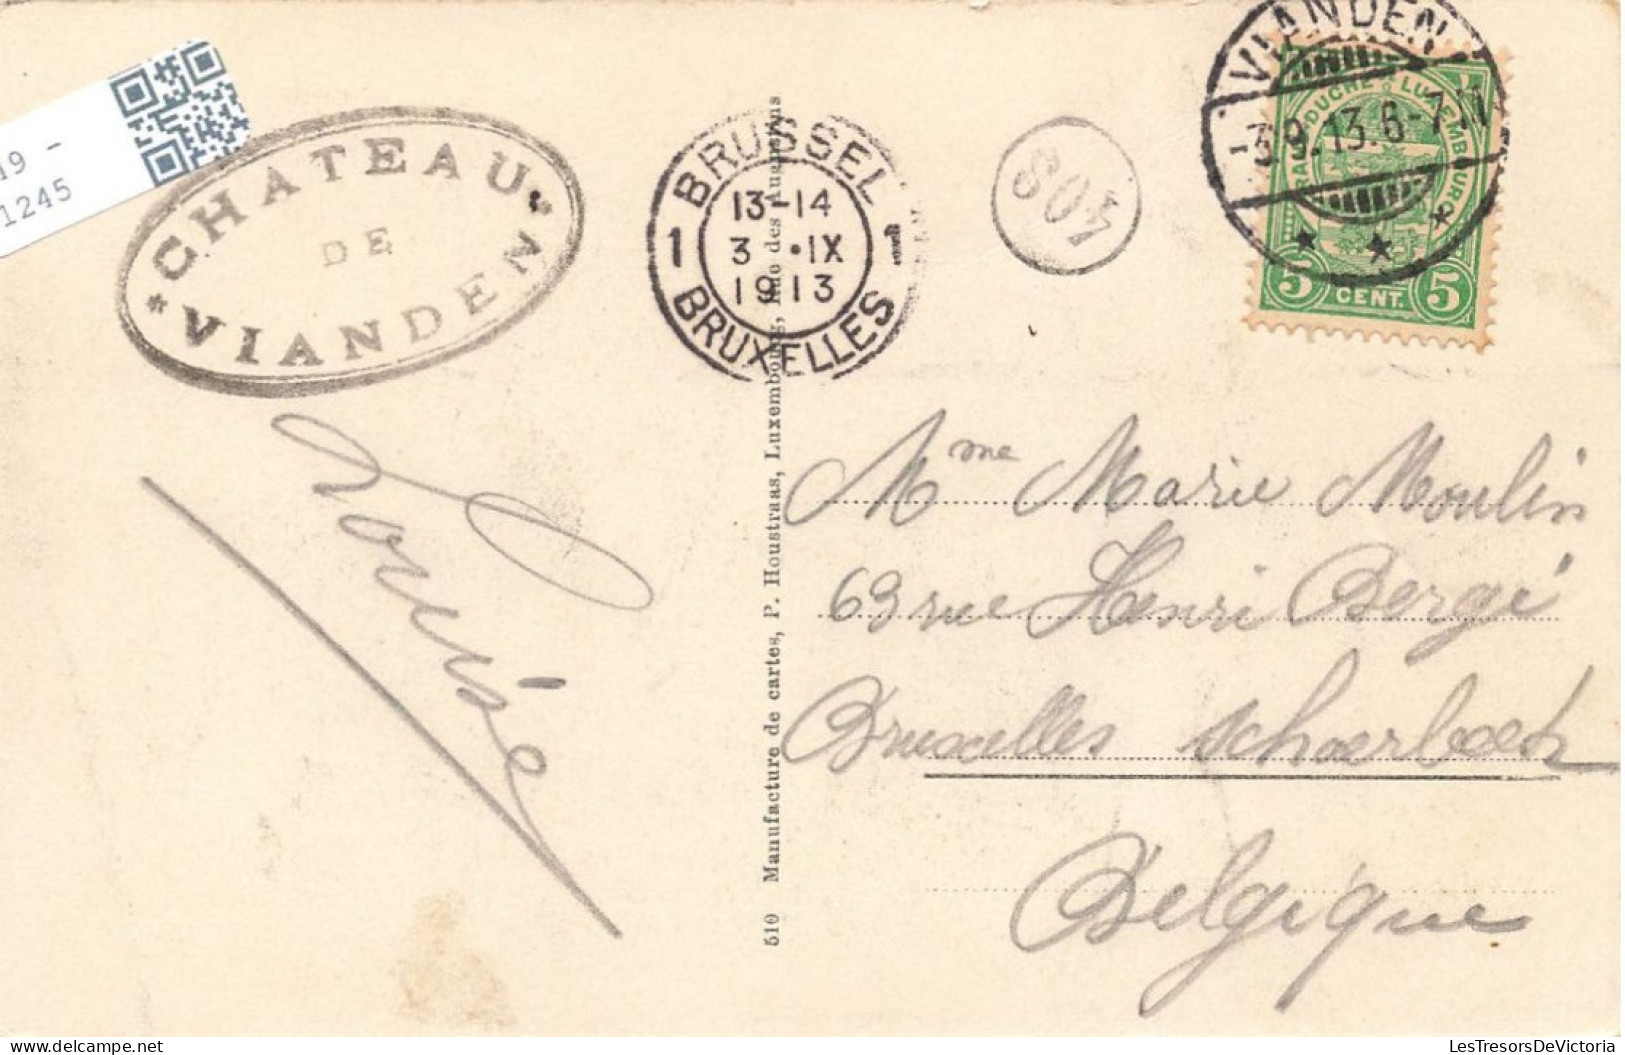 19 -
1245
CHATEAU
DE
VIANDEN
BRUSSEL
1 13-14 1
3 .IX
1913
BRUXELLES
408
VIANDEN
-3.9.13.6-7
DUCHÉ LUXEMBOURG
5 CENT. 5
Louise
510 Manufacture de cartes, P. Houstraas, Luxembourg, Rue des Augustins
Mme Marie Moulin
63 rue Henri Bergé
Bruxelles Schaerbeek
Belgique
LesTresorsDeVictoria
www.delcampe.net